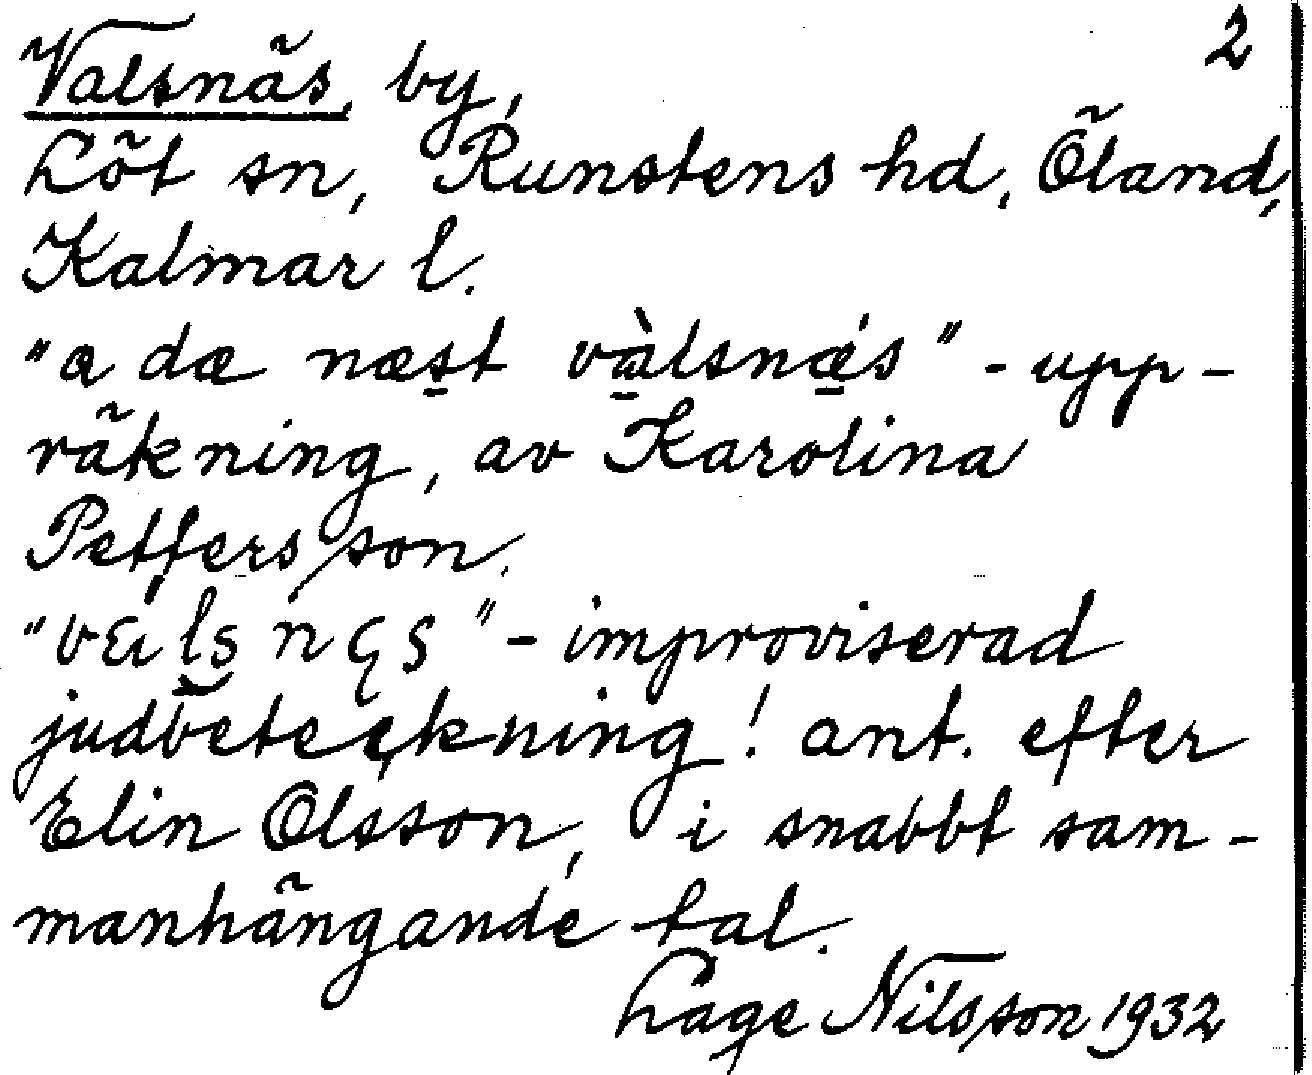 2
Valsnäs, by,
Löt sn, Runstens hd, Öland,
Kalmar l.
"a dæ næst vàlsnæ's" - upp-
räkning, av Karolina
Pettersson.
- improviserad
judbeteckning! ant. efter
Elin Olsson, i snabbt sam-
manhängande tal.
Lage Nilsson 1932